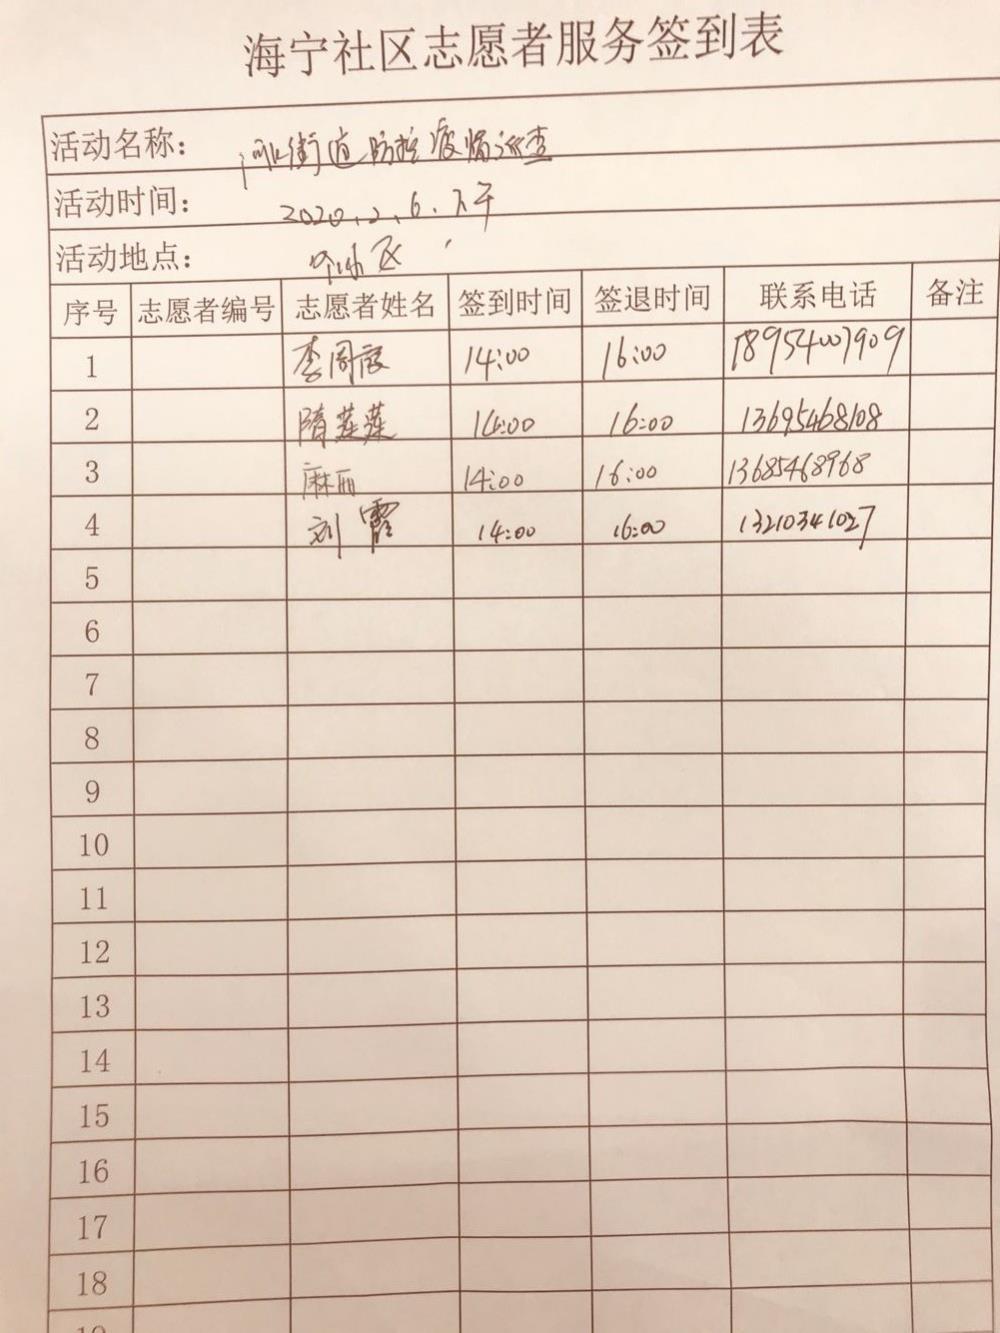 海宁社区志愿者服务签到表
活动名称： 街道防控疫情巡查
活动时间： 2020.2.6.下午
活动地点：
序号 志愿者编号 志愿者姓名 签到时间 签退时间 联系电话 备注
1 李 14:00 16:00 18954007909
2 隋莲莲 14:00 16:00 13695468108
3 麻丽 14:00 16:00 13685468968
4 刘霞 14:00 16:00 13210341027
5
6
7
8
9
10
11
12
13
14
15
16
17
18